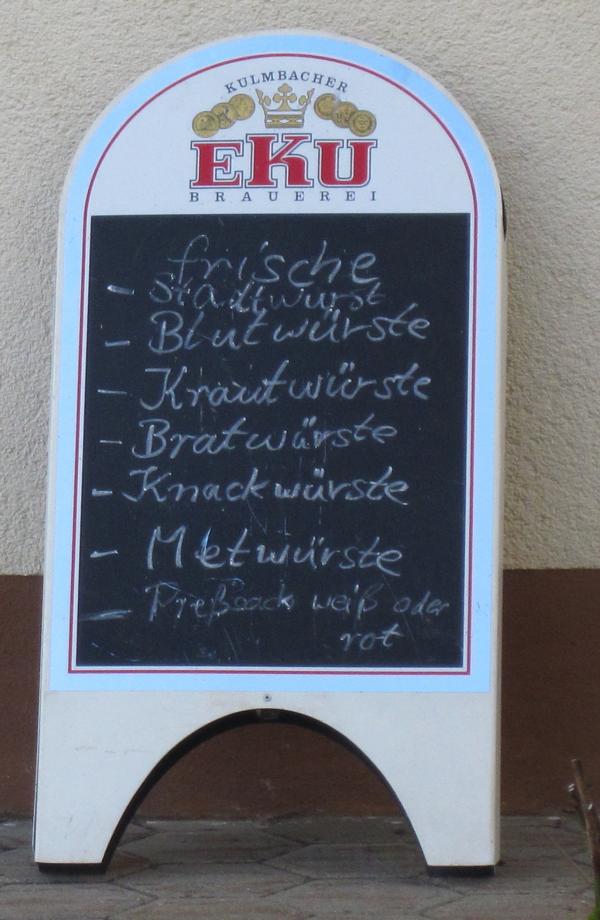 KULMBACHER
EKU
BRAUEREI
frische
- Stadtwurst
- Blutwürste
- Krautwürste
- Bratwürste
- Knackwürste
- Metwürste
- Preßsack weiß oder
rot